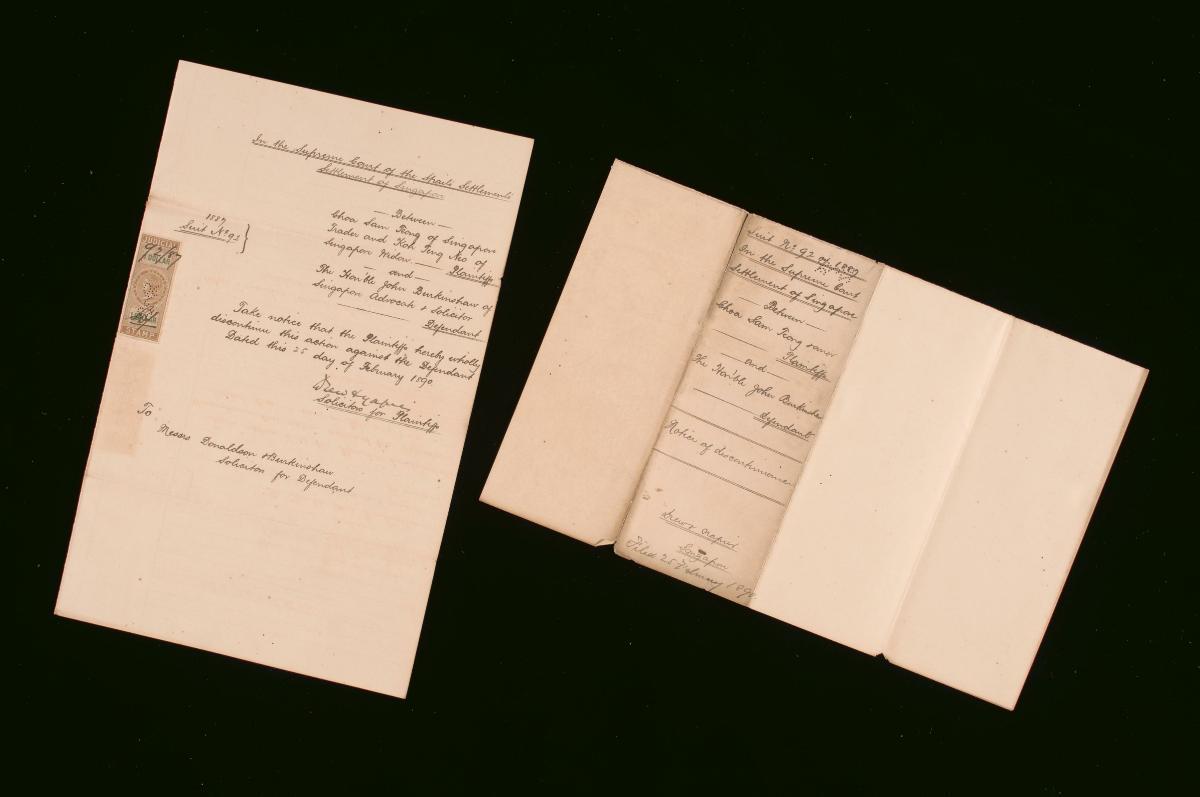 In the Supreme Court of the Straits Settlements
Settlement of Singapore
1887
Suit No 92
— Between —
Choa Sam Teong of Singapore
Trader and Koh Teng Neo of
Singapore Widow — Plaintiffs
— and —
The Hon'ble John Burkinshaw of
Singapore Advocate & Solicitor
Defendant
JUDICIAL
92/87
DOLLAR
STAMP
Take notice that the Plaintiffs hereby wholly
discontinue this action against the Defendant
Dated this 25 day of February 1890
Drew & Napier
Solicitors for Plaintiffs
To
Messrs Donaldson & Burkinshaw
Solicitors for Defendant
Suit No 92 of 1887
In the Supreme Court
Settlement of Singapore
— Between —
Choa Sam Teong & anor
Plaintiffs
— and —
The Hon'ble John Burkinshaw
Defendant
Notice of discontinuance
Drew & Napier
Singapore
Filed 25 February 1890